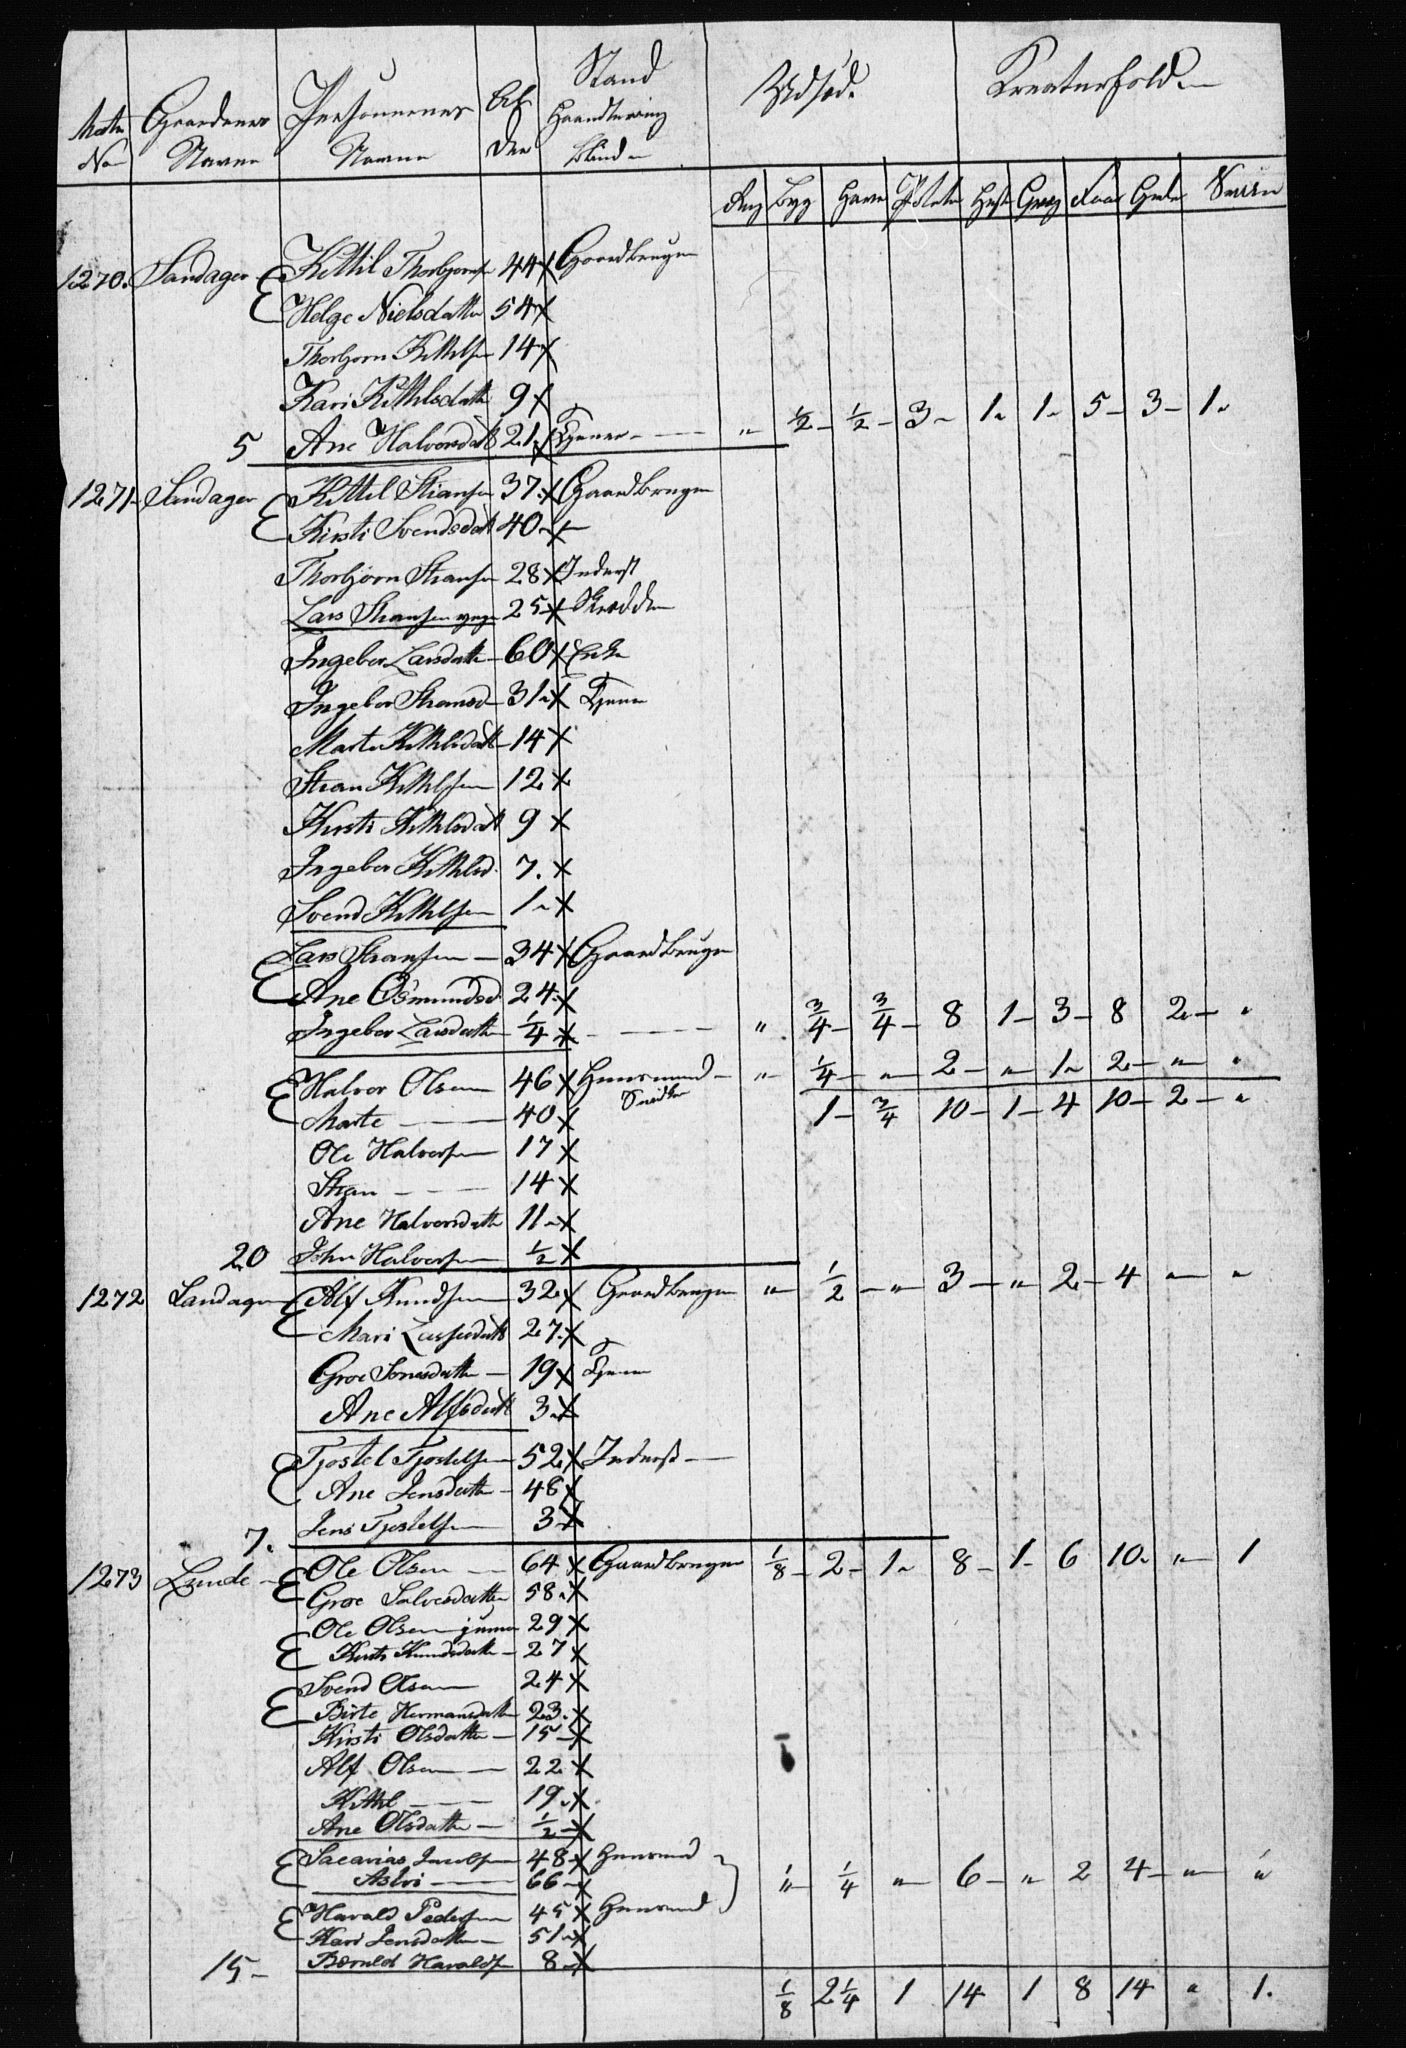 Matr No Gaardenes Navne Personnernes Navne Alder Stand Haandtering Blind Udsæd. Kreaturhold
Rug Byg Havre Poteter Hest Faar Sviin
1270. Sandager Kittil Thorbjørns 44 x Gaardbruger
Helge Nielsdatter 54 x
Thorbjørn Kittilsen 14 x
Kari Kittilsdatter 9 x
5 Ane Halvorsdat 21. x Tjener — " ½ - ½ - 3 - 1 - 1 - 5 - 3 - 1 -
1271 Sandager Kittil Stiansen 37. x Gaardbruger
Kirsti Svendsdat 40 - x
Thorbjørn Stiansen 28 x Inderst
Lars Stiansen yngr 25 x Skredder
Ingebor Larsdatter - 60 x Enke
Ingebor Stiansd - 31 - x Tjener
Marte Kittilsdatt - 14 x
Stian Kittilsen 12 x
Kirsti Kittilsdatt 9 x
Ingebor Kittilsd. 7. x
Svend Kittilsen 1 - x
Lars Stiansen — 34 x Gaardbruger
Ane Osmundsd. 24. x
Ingebor Larsdatter ¼ x — " ¾ - ¾ - 8 1 - 3 - 8 2 - "
Halvor Olsen 46 x Huusmand - " - ¼ - " - 2 - " - 1 - 2 - " - "
Smidter 1 - ¾ 10 - 1 - 4 10 - 2 - "
Marte — 40 x
Ole Halvorsen 17 x
Stian — 14 x
Ane Halvorsdatter 11 - x
20 John Halvorsen ½ x
1272 Sandager Alf Knudsen 32 x Gaardbruger " - ½ - " - 3 - " - 2 - 4 " - "
Mari 27. x
Groe Jonesdatter - 19 x Tjener
Ane Alfsdatt 3 x
Tjostel Tjostelsen 52 x Inderst —
Ane Jensdatter - 48 x
7. Jens Tjostelsen 3 x
1273 Lunde - Ole Olsen — 64 x Gaardbruger ⅛ - 2 - 1 - 8 - 1 - 6 10 - " - 1
Groe Salvesdatter 58 - x
Ole Olsen junior 29 x
Kirsti Knudsdatter - 27 x
Svend Olsen 24 x
Birte Hermansdatter 23. x
Kirsti Olsdatter - 15 - x
Alf Olsen — 22 x
Kittil — 19 - x
Ane Olsdatter - ½ - x
Sacarias Jacobsen 48 - x Huusmd
Aslvi — 66 - x " - ¼ " - 6 - " 2 4 - " - "
Harald Pedersen 45 x Huusmd
Kari Jensdatter - 51 - x
15 - Børuld Haralds 8 - x
⅛ 2¼ 1 14 1 8 14 " 1.